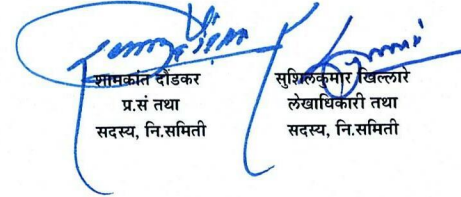 शामकांत दौंडकर
प्र.सं तथा
सदस्य, नि.समिती
सुशिलकुमार खिल्लारे
लेखाधिकारी तथा
सदस्य, नि.समिती